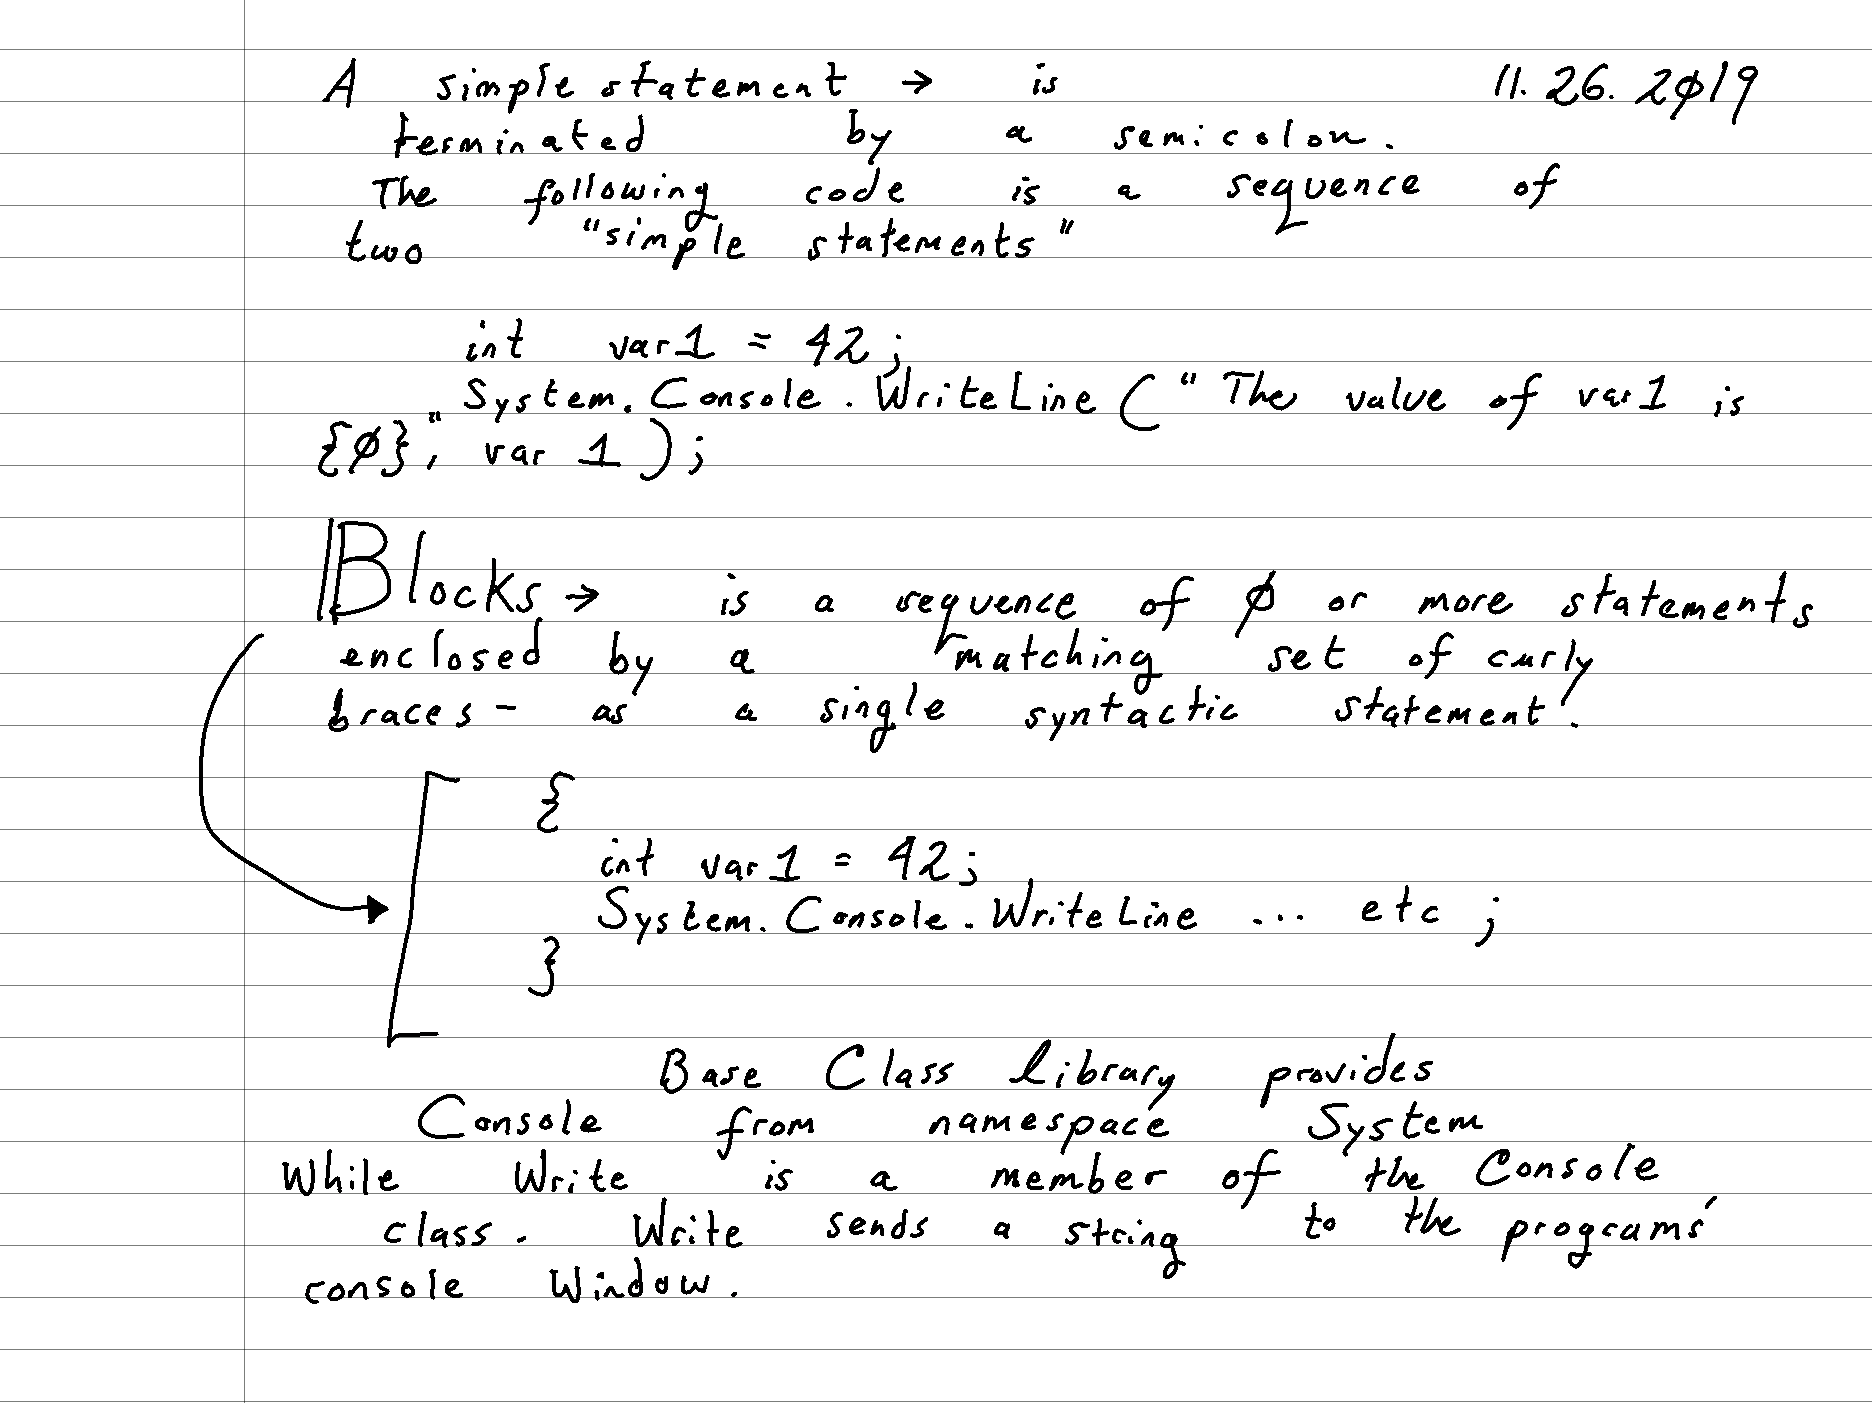 A simple statement → is 11.26.2Ø19
terminated by a semicolon.
The following code is a sequence of
two "simple statements"
int var1 = 42;
System.Console.WriteLine("The value of var1 is
{Ø}", var 1);
Blocks → is a sequence of Ø or more statements
enclosed by a matching set of curly
braces - as a single syntactic statement!
{
int var1 = 42;
System.Console.WriteLine ... etc ;
}
Base Class Library provides
Console from namespace System
While Write is a member of the Console
class. Write sends a string to the programs'
console Window.